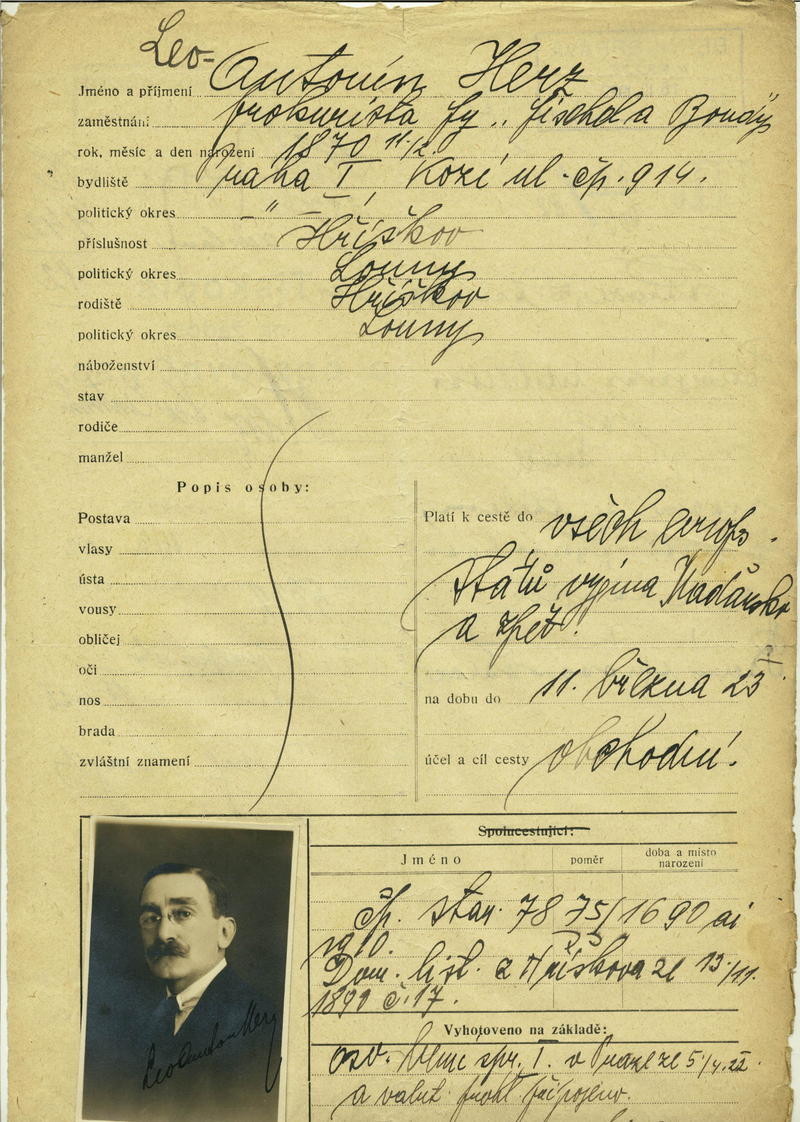 Leo-
Jméno a příjmení Antonín Herz
zaměstnání: prokurista fy. „Fischel a Bondy"
rok, měsíc a den narození 1870 11/2.
bydliště Praha I, Kozí ul. čp. 914.
politický okres -"-
příslušnost Hříškov
politický okres Louny
rodiště Hříškov
politický okres Louny
náboženství
stav
rodiče
manžel
Popis osoby:
Postava
vlasy
ústa
vousy
obličej
oči
nos
brada
zvláštní znamení
Platí k cestě do všech evrop.
států vyjma Maďarsko
a zpět.
na dobu do 11. března 23
účel a cíl cesty obchodní.
Spolucestující:
Jméno poměr doba a místo narození
čp. star. 7875/1690 ai
Dom. list. z Hříškova ze 13/11.
1899 č. 17.
Vyhotoveno na základě:
osv. bern. spr. I. v Praze ze 5/4. 22.
a valut. prohl. připojeno.
Leo Anton Herz